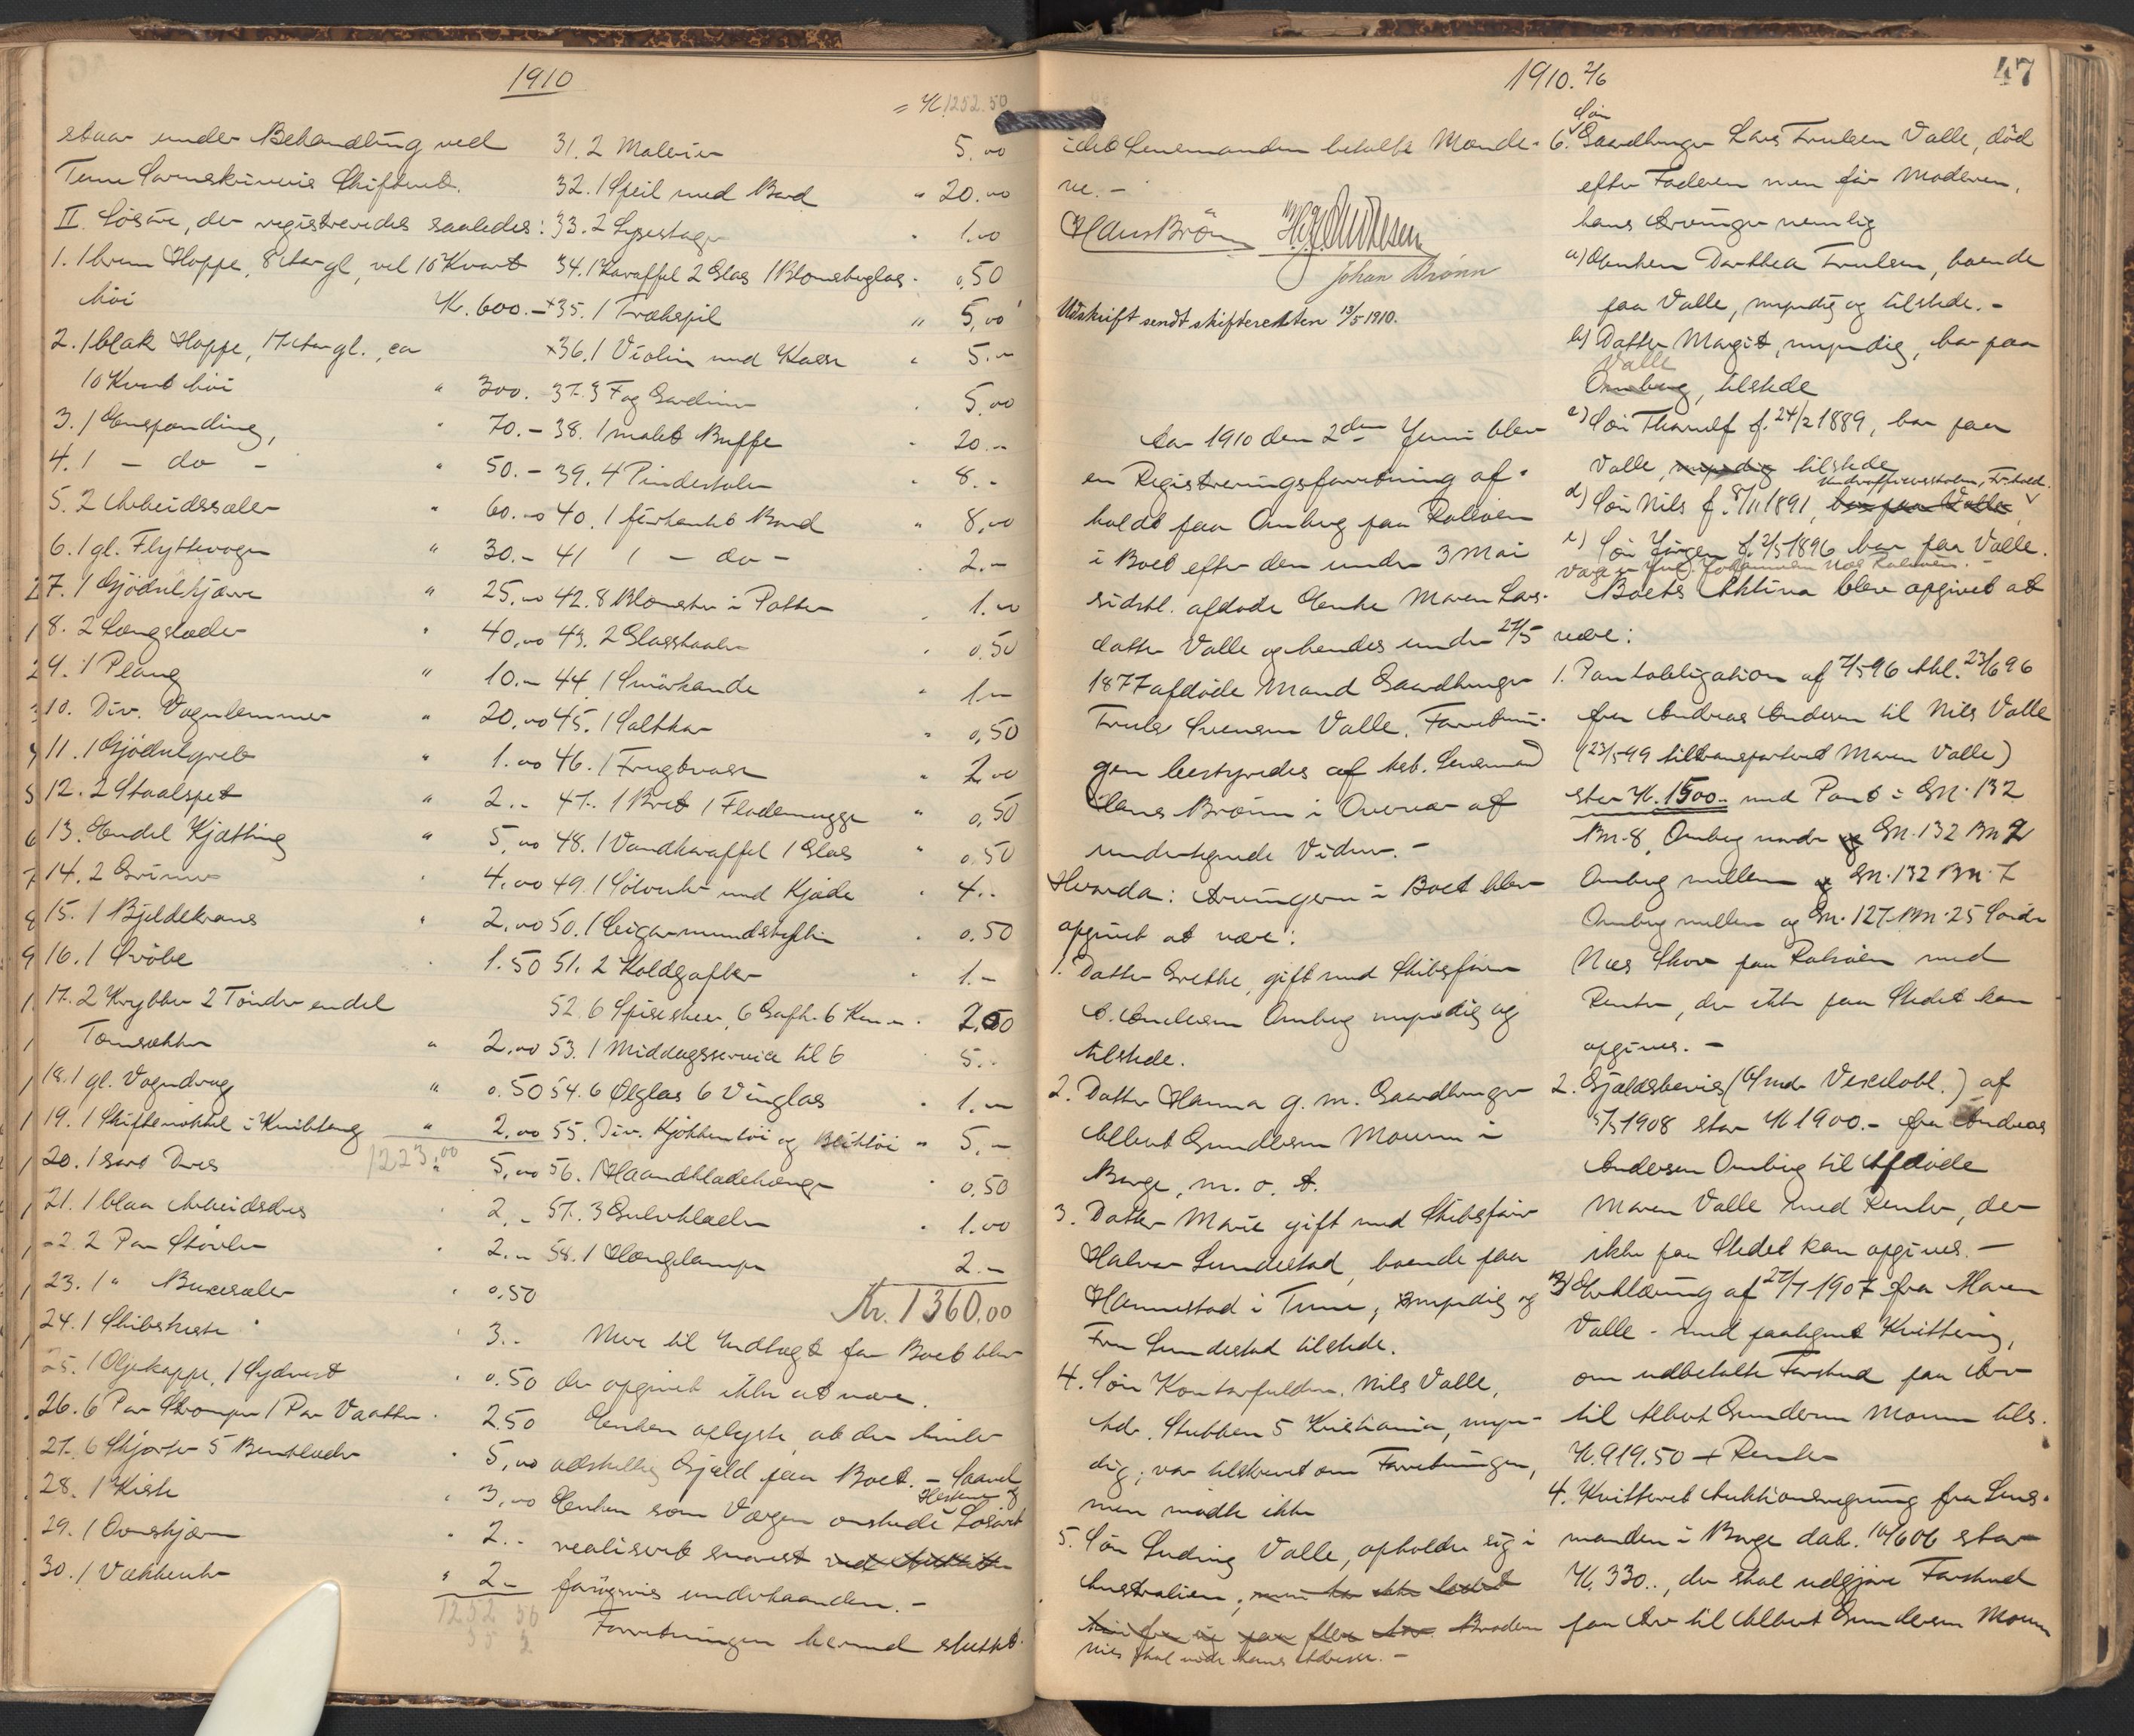 1910
= Kr. 1252.50
staar under Behandling ved
Tune Sorenskriveris Skifteret.
II. Løsøre, der registreredes saaledes:
1. 1 brun Hoppe, 8 Aar gl, vel 10 Kvart
høi Kr. 600.-
2. 1 blak Hoppe, 17 Aar gl., ca
10 Kvart høi " 300.
3. 1 Enspænding, " 70.-
4. 1 - do - " 50.-
5. 2 Arbeidssæler " 60.00
6. 1 gl. Flyttevogn " 30.-
7. 1 Gjødselkjærre " 25.00
8. 2 Langslæder " 40.00
9. 1 Ploug " 10.-
10. Div. Vognlemmer " 20.00
11. 1 Gjødselgreb " 1.00
12. 2 Staalspet " 2..
13. Endel Kjætting " 5,00
14. 2 Grimer " 4.00
15. 1 Bjeldekrans " 2.00
16. 1 Svøbe " 1.50
17. 2 Krybber 2 Tønder endel
Tomsække " 2.00
18. 1 gl. Vogndrag " 0.50
19. 1 Skiftenøkkel 1 Knibtang " 2.00
1223.00
20. 1 sort Dres " 5,00
21. 1 blaa Arbeidsdres " 2.-
22. 2 Par Støvler " 2.-
23. 1 " Buxesæler " 0.50
24. 1 Skibskiste " 3..
25. 1 Oljekappe, 1 Sydvest " 0.50
26. 6 Par Strømper 1 Par Vaatter " 2.50
27. 6 Skjorter 5 Benklæder " 5,00
28. 1 Kiste " 3,00
29. 1 Ovnskjærm " 2..
30. 1 Vækkeuhr " 2.-
1252 50
31. 2 Malerier 5.00
32. 1 Speil med Bord " 20.00
33. 2 Lysestager " 1.00
34. 1 Karaffel 2 Glas 1 Blomsterglas " 0.50
+35. 1 Trækspil " 5,00
+36. 1 Violin med Kasse " 5.-
37. 3 Fag Gardiner " 5.00
38. 1 malet Buffe " 20.-
39. 4 Pindestole " 8.-
40. 1 firkantet Bord " 8,00
41 1 - do - 2.-
42. 8 Blomster i Potter 1.00
43. 2 Glasskaaler 0.50
44. 1 Smørkande " 1.-
45. 1 Saltkar " 0,50
46. 1 Frugtvase " 2.00
47. 1 Bret 1 Flødemugge " 0,50
48. 1 Vandkaraffel 1 Glas " 0.50
49. 1 Sølvuhr med Kjæde " 4..
50. 1 Cigarmundstykke " 0.50
51. 2 Koldgafler " 1.-
52. 6 Spiseskeer, 6 Gafl. 6 Kn. " 2.50
53. 1 Middagsservice til 6 5..
54. 6 Ølglas 6 Vinglas " 1.-
55. Div. Kjøkkentøi og Bliktøi " 5.-
56. 1 Haandklædehænger " 0.50
57. 3 Gulvklæder " 1.00
58. 1 Hængelampe 2.-
Kr. 1360.00
Mere til Indtægt for Boet blev
der opgivet ikke at være.
Enken oplyste, at der hviler
adskillig Gjæld paa Boet. - Saavel
Enken som Værgen ønskede Hestene og Løsøret
realiseret snarest
forøgvis underhaanden.-
Forretningen hermed sluttet
1910. 2/6
47
idet Lensmanden betalte Mænde-
ne.-
Hans Brønn
Johan Brønn
Udskrift sendt skifteretten 13/5 1910.
Aar 1910 den 2den Juni blev
en Registreringsforretning af-
holdt paa Omberg paa Rolvsøen
i Boet efter den under 3 Mai
sidstl. afdøde Enke Maren Lars-
datter Valle og hendes under 27/5
1877 afdøde Mand Gaardbruger
Truls Svensen Valle. Forretnin-
gen bestyredes af kst. Lensmand
Hans Brønn i Overvær af
undertegnede Vidner.-
Hvorda: Arvingerne i Boet blev
opgivet at være:
1. Datter Grethe, gift med Skibsfører
A. Andersen Omberg myndig og
tilstede.
2. Datter Hanna g. m. Gaardbruger
Albert Gundersen Moum i
Borge, m. o. t.
3. Datter Marie gift med Skibsfører
Halvor Sundestad, boende paa
Hannestad i Tune, myndig og
Fru Sundestad tilstede.
4. Søn Kontorfuldm. Nils Valle,
Adr. Stubben 5 Kristiania, myn-
dig; var tilskrevet om Forretningen,
men mødte ikke
5. Søn Luding Valle, opholder sig i
Australien, men har ikke ladet
Broderen
Nils skal vide hans Adresse.-
6. Søn Gaardbruger Lars Trulsen Valle, død
efter Faderen men før Moderen,
hans Arvinger nemlig
a) Enken Dorthea Trulsen, boende
paa Valle, myndig og tilstede.-
b) Datter Margit, myndig, bor paa
Valle
Omberg, tilstede
c) Søn Thorulf f. 24/2 1889, bor paa
Valle, myndig tilstede
d) Søn Nils f. 8/11 1891, bor paa Valle, Underofficersskolen, Fr.hald.
e) Søn Jørgen f. 2/5 1896 bor paa Valle.
Boets Aktiva blev opgivet at
være:
1. Pantobligation af 7/5 96 thl. 23/6 96
fra Andreas Andersen til Nils Valle
(23/5 99 tiltransporteret Maren Valle)
stor Kr. 1500.- med Pant i Gn. 132
Bn. 8, Omberg nordre Gn. 132 Bn 2
Omberg mellem Gn. 132 Bn. 7
Omberg mellem og Gn. 127 Bn. 25 Søndre
Næs Skov paa Rolvsøen med
Renter, der ikke paa Stedet kan
opgives.-
2. Gjældsbevis (Under Vexelobl.) af
5/3 1908 stor Kr 1900.- fra Andreas
Andersen Omberg til Afdøde
Maren Valle med Renter, der
ikke paa Stedet kan opgives.-
3) Erklæring af 27/7 1907 fra Maren
Valle - med paategnet Kvittering,
om udbetalte Forskud paa Arv
til Albert Gundersen Moum tils.
Kr. 919.50 + Renter
4. Kvitteret Auktionsregning fra Lens-
manden i Borge dat. 10/6 06 stor
Kr. 330.., der skal udgjøre Forskud
paa Arv til Albert Gundersen Moum